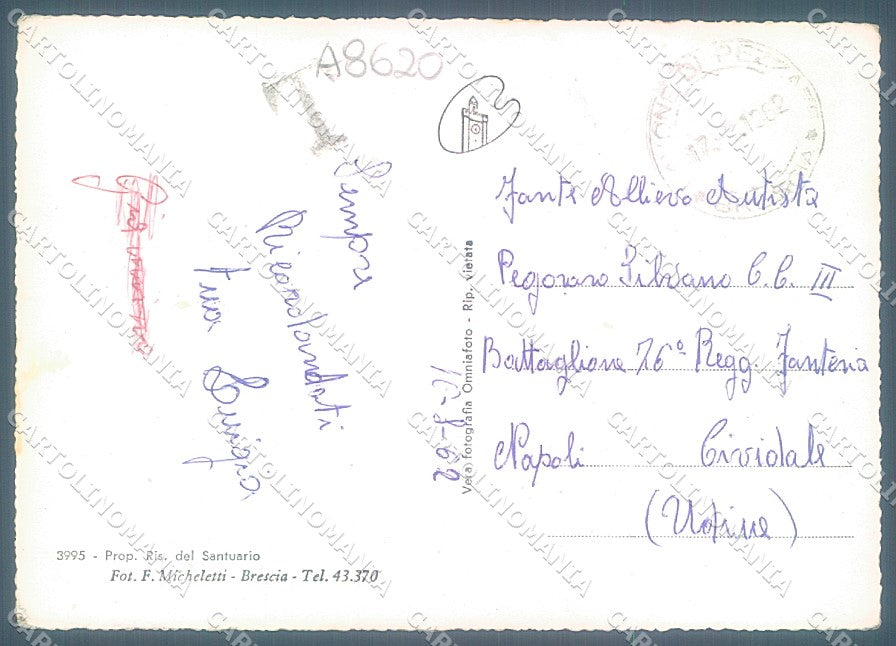 A8620
T
Sempre
Ricordandoti
tua
17 1962
Fante Allievo Autista
Pegoraro Silvano C.C. III
Battaglione 76° Regg. Fanteria
Napoli Cividale
(Udine)
Vera fotografia Omniafoto - Rip. vietata
3995 - Prop. Ris. del Santuario
Fot. F. Micheletti - Brescia - Tel. 43.370
CARTOLINOMANIA